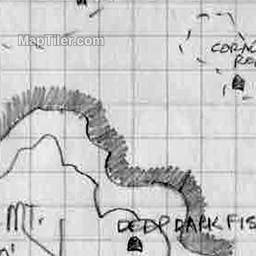 MapTiler.com
CORAC
REE
MT.
DEEP DARK FIS